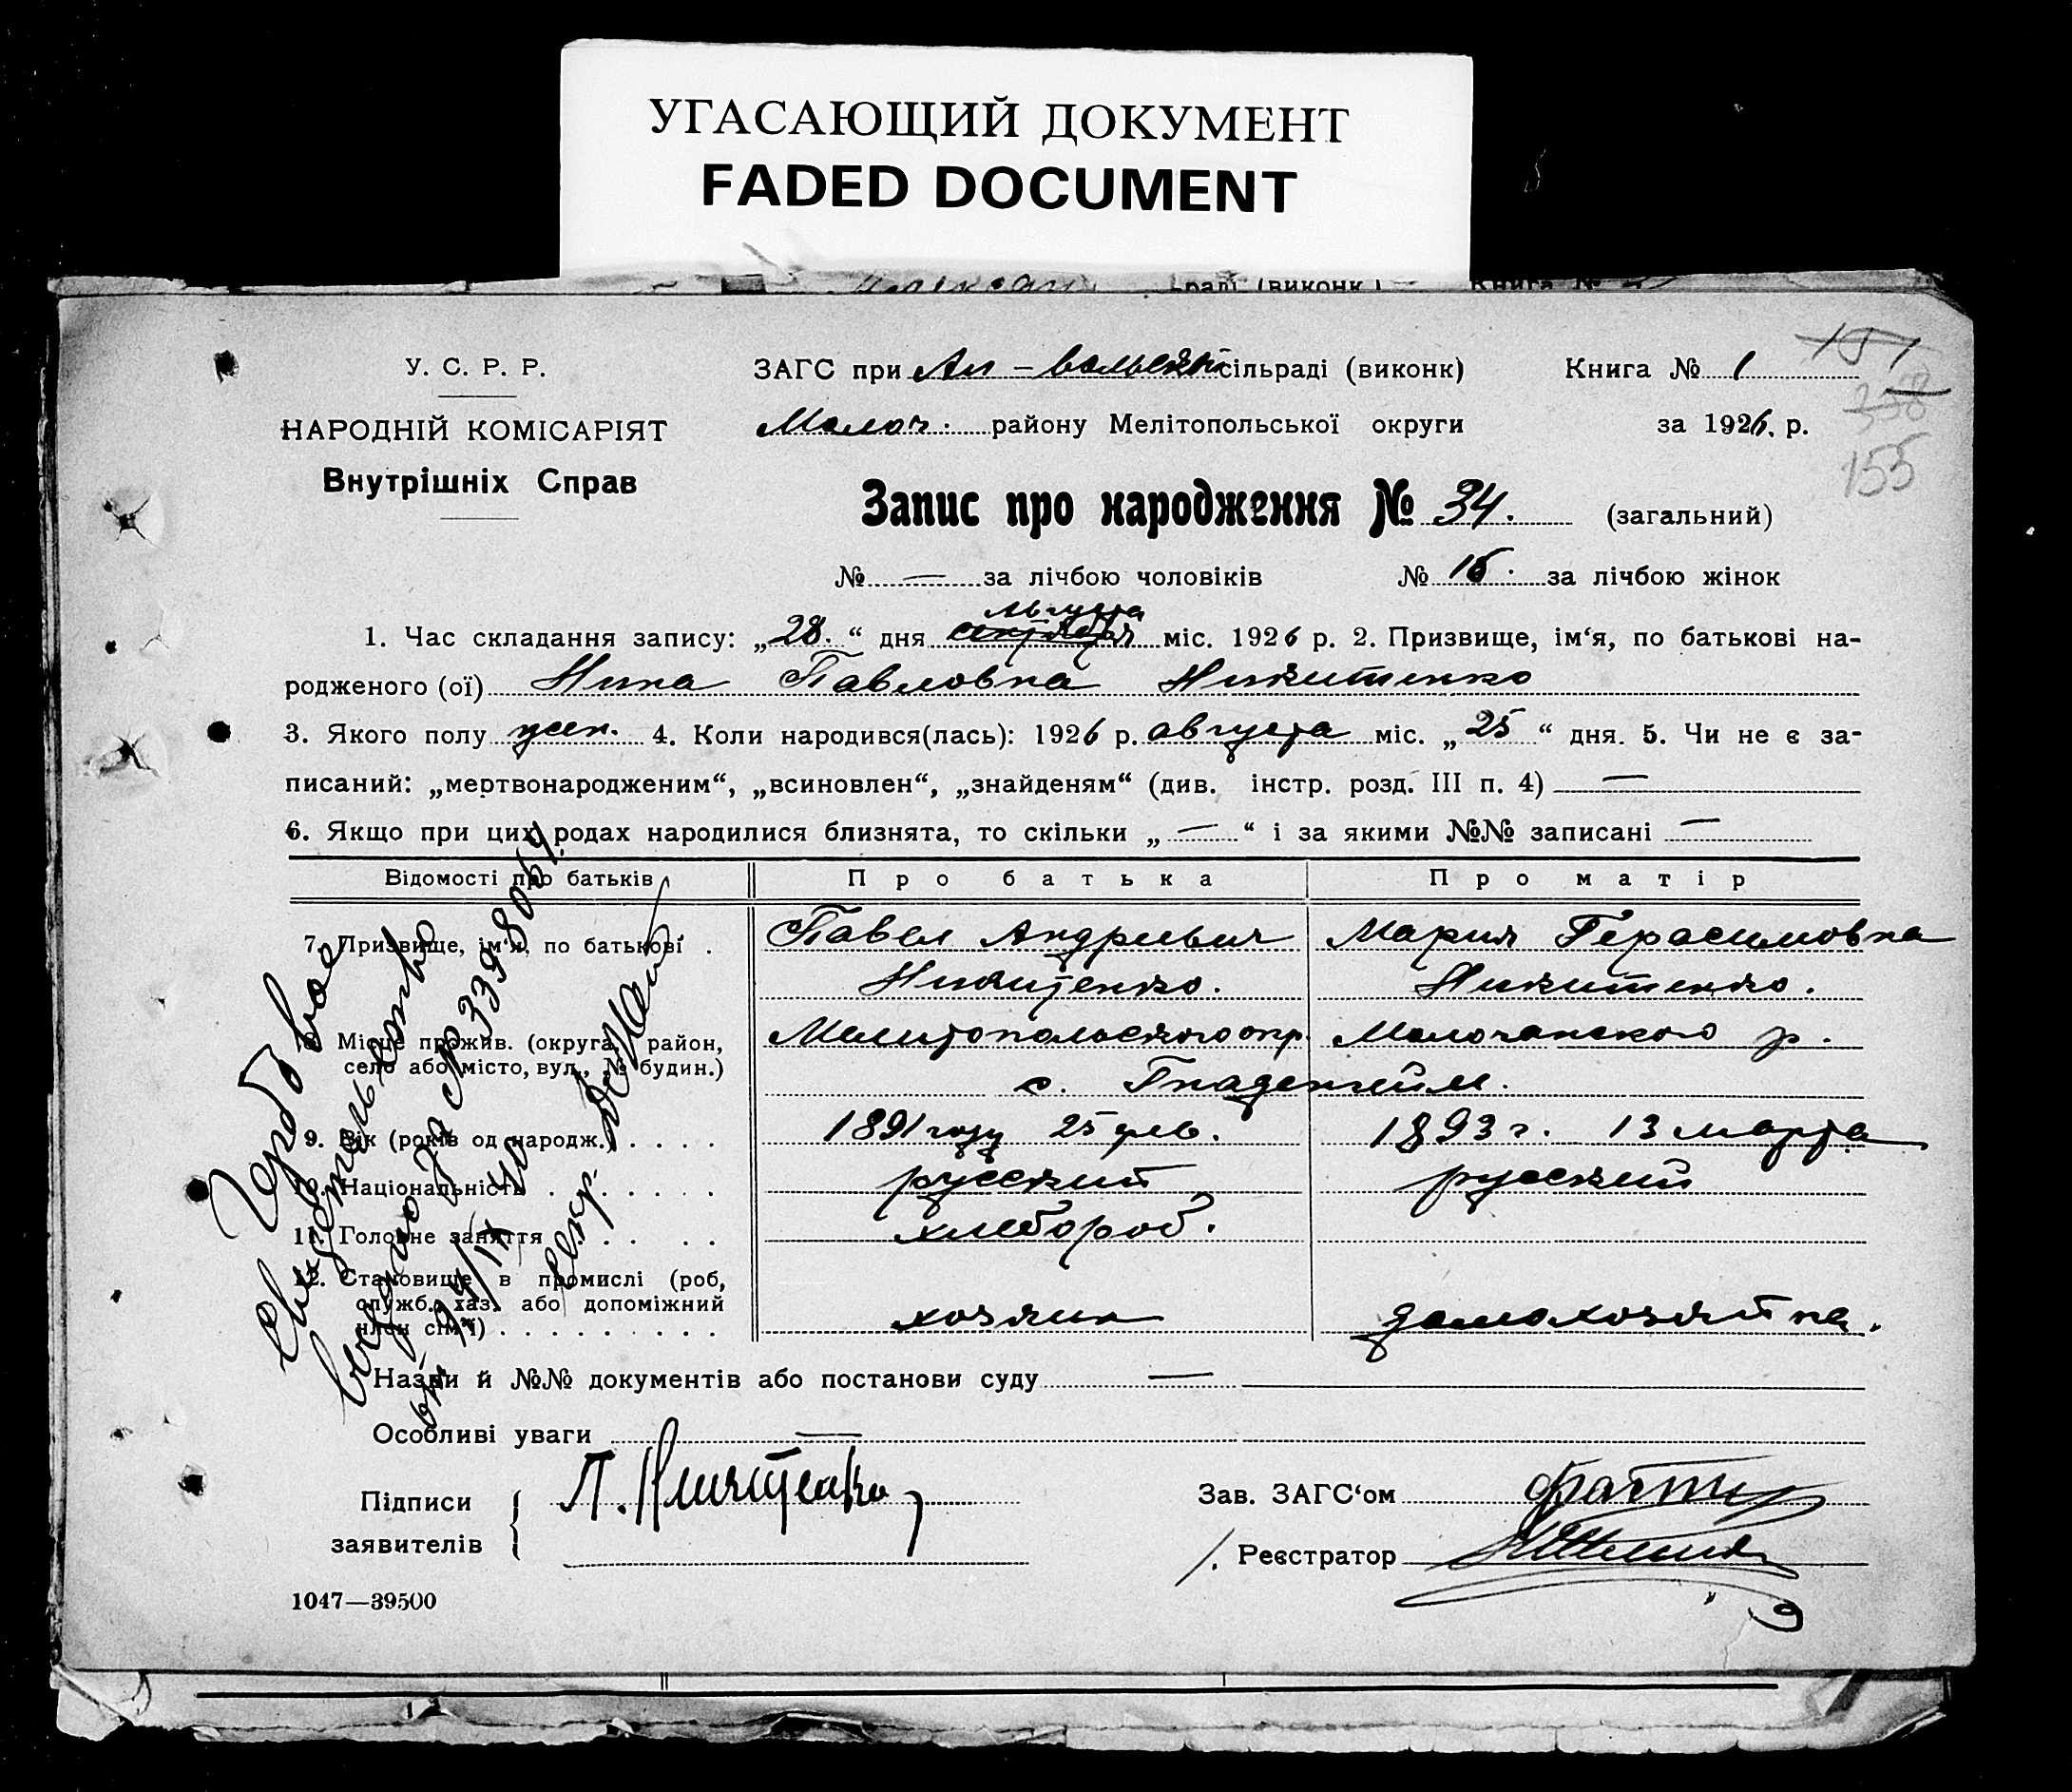 УГАСАЮЩИЙ ДОКУМЕНТ
FADED DOCUMENT
раді (виконк.) Книга №
У. С. Р. Р.
НАРОДНІЙ КОМІСАРІЯТ
Внутрішніх Справ
ЗАГС при Ал - сільраді (виконк) Книга № 1
Молоч. району Мелітопольської округи за 1926. р.
151
358
155
Запис про народження № 34. (загальний)
№ — за лічбою чоловіків № 16. за лічбою жінок
августа
1. Час складання запису: „28.“ дня сентября міс. 1926 р. 2. Призвище, ім‘я, по батькові на-
родженого (ої) Нина Павловна Никитенко
3. Якого полу жен. 4. Коли народився(лась): 1926 р. августа міс. „25“ дня. 5. Чи не є за-
писаний: „мертвонародженим“, „всиновлен“, „знайденям“ (див. інстр. розд. III п. 4) —
6. Якщо при цих родах народилися близнята, то скільки „—“ і за якими №№ записані —
Відомості про батьків Про батька Про матір
7. Призвище, ім‘я, по батькові . Павел Андреевич Мария Герасимовна
Никитенко. Никитенко.
8. Місце прожив. (округа, район, Мелитопольского окр. Молочанского р.
село або місто, вул., № будин.) с. Гнаденгейм.
9. Вік (років од народж.) . . . . 1891 году 25 янв. 1893 г. 13 марта
10. Національність . . . . . . русский русский
11. Головне заняття . . . . хлебороб.
12. Становище в промислі (роб,
служб., хаз. або допоміжний
член сім‘ї) . . . . . . . . . хозяин домохозяйка.
Назви й №№ документів або постанови суду —
Особливі уваги —
Підписи П. Никитенко Зав. ЗАГС‘ом
заявителів
Реєстратор
1047—39500
Гербовое
свидетельство
выдано за № 339 8064.